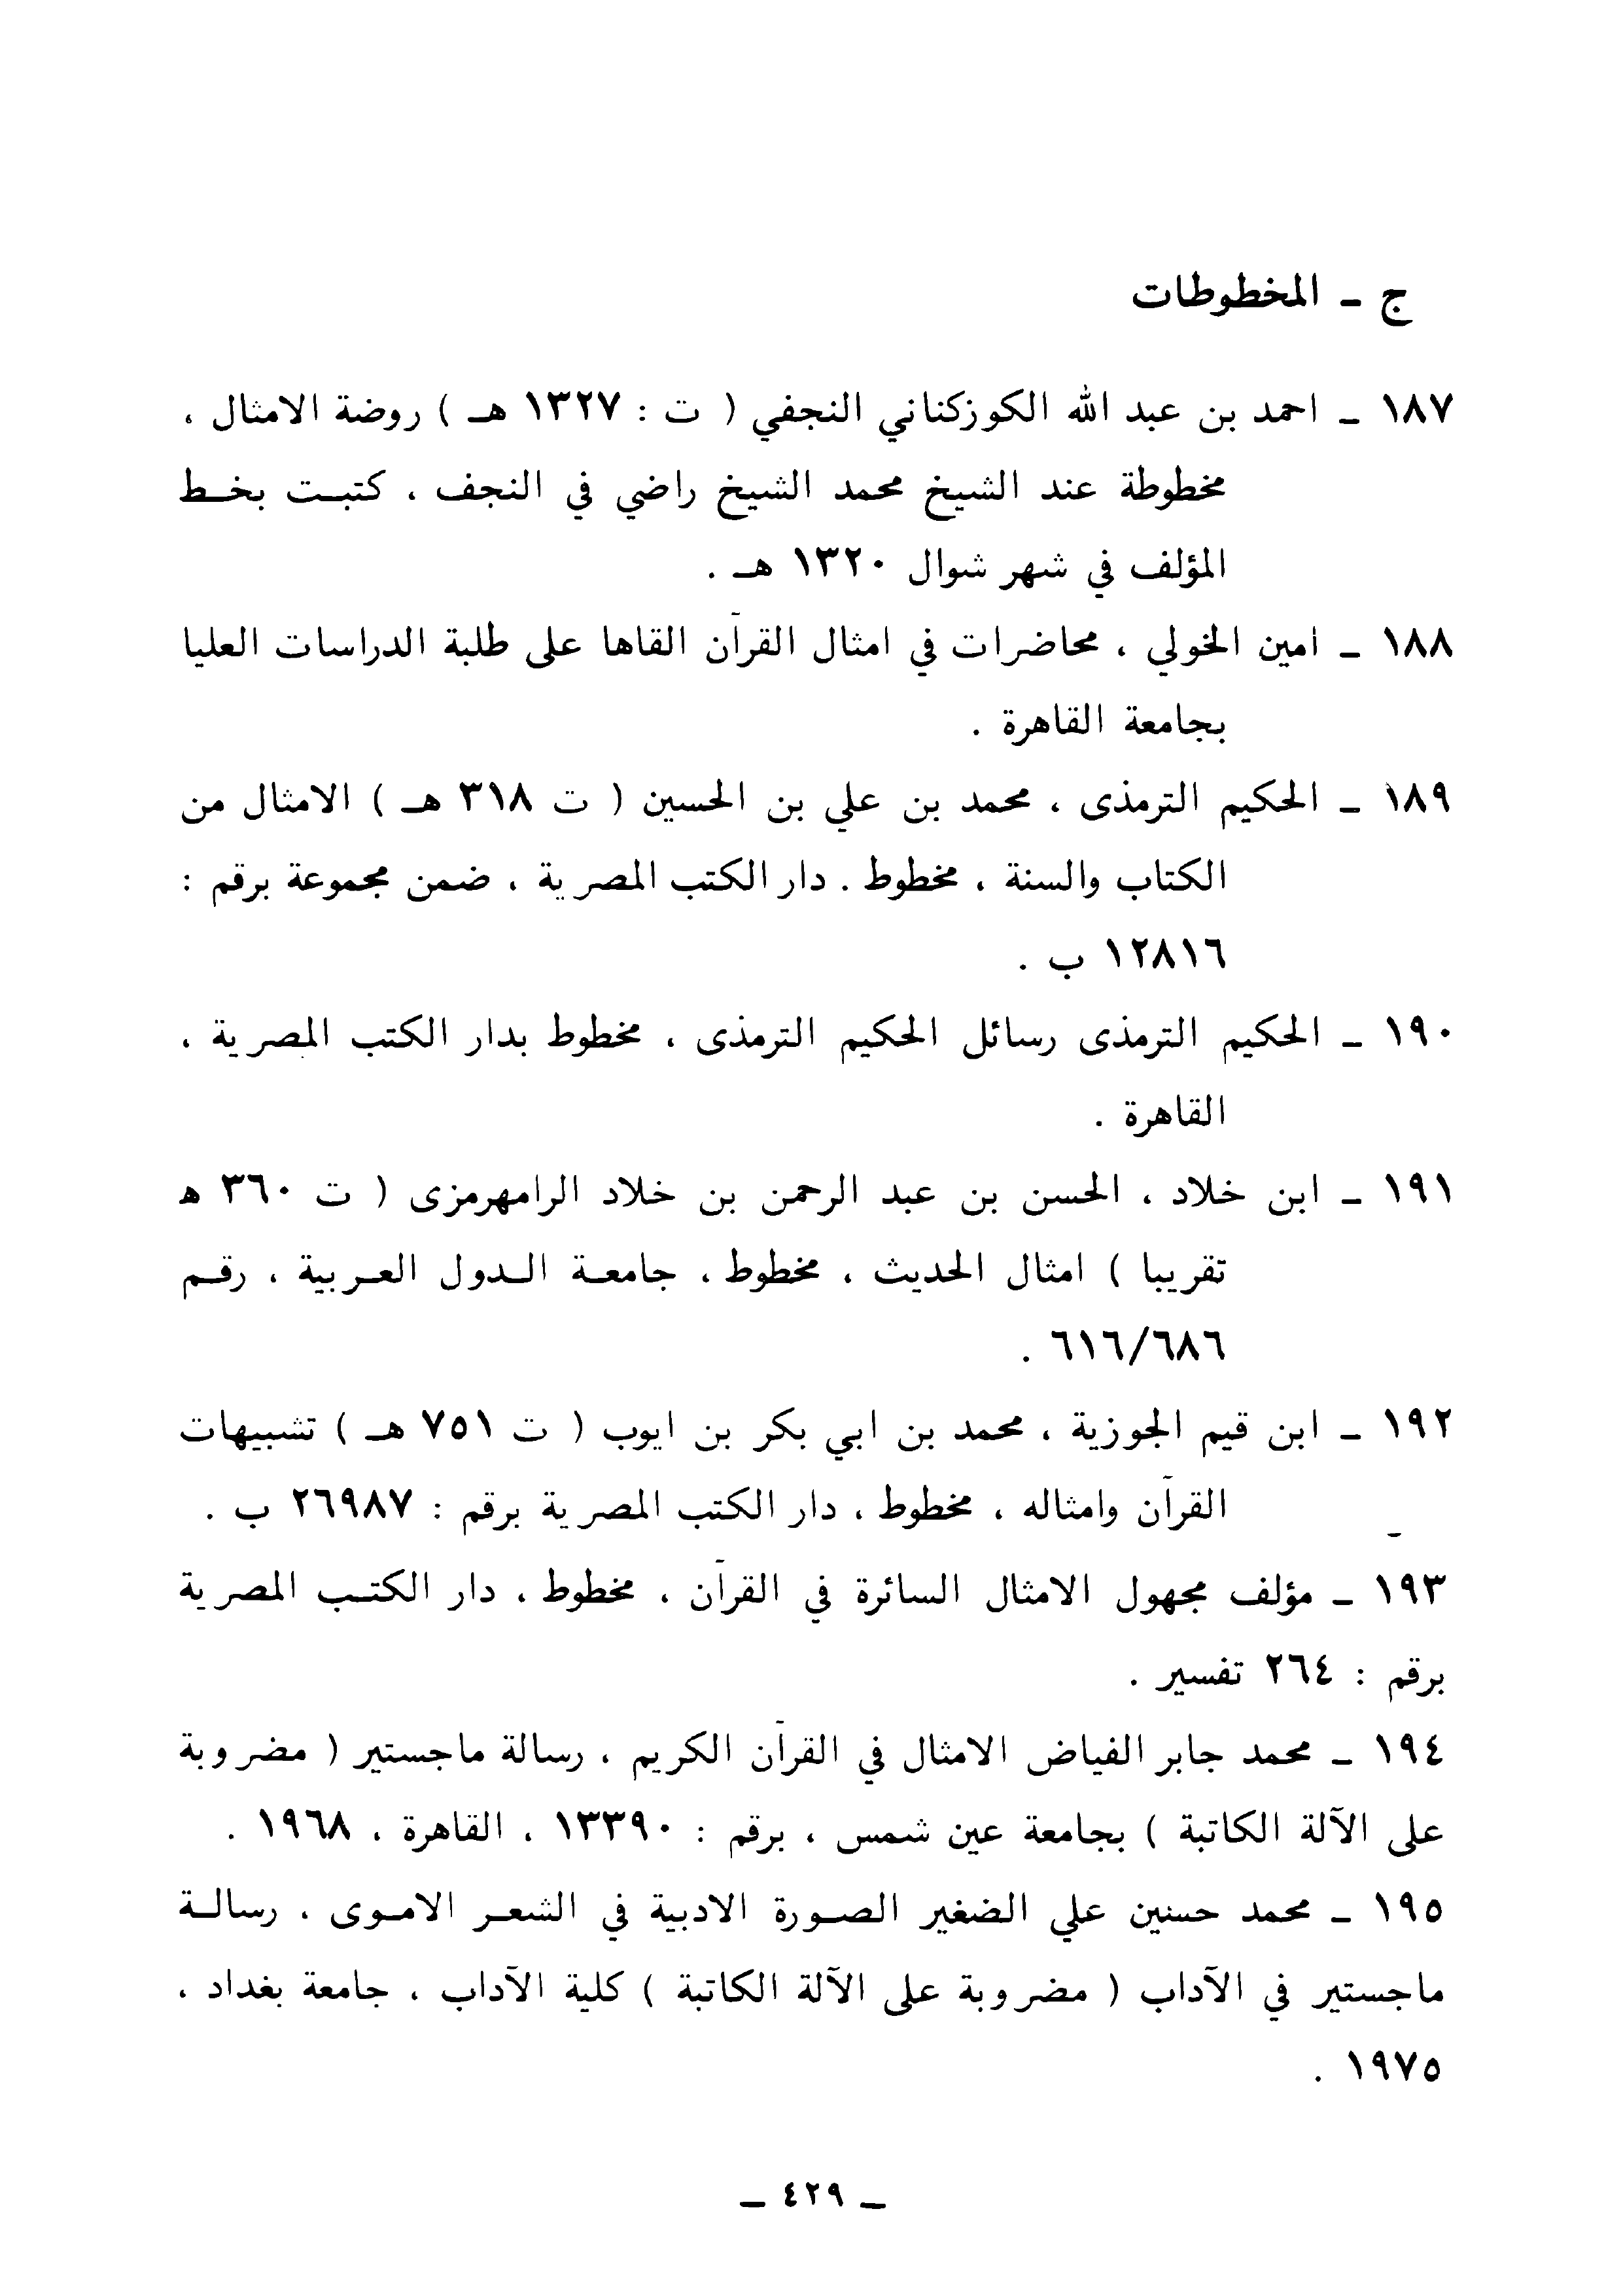 ج ـ المخطوطات
١٨٧ ـ احمد بن عبد الله الكوزكناني النجفي ( ت : ١٣٢٧ هـ ) روضة الامثال ،
مخطوطة عند الشيخ محمد الشيخ راضي في النجف ، كتبت بخط
المؤلف في شهر شوال ١٣٢٠ هـ .
١٨٨ ـ امين الخولي ، محاضرات في امثال القرآن القاها على طلبة الدراسات العليا
بجامعة القاهرة .
١٨٩ ـ الحكيم الترمذى ، محمد بن علي بن الحسين ( ت ٣١٨ هـ ) الامثال من
الكتاب والسنة ، مخطوط . دار الكتب المصرية ، ضمن مجموعة برقم :
١٢٨١٦ ب .
١٩٠ ـ الحكيم الترمذى رسائل الحكيم الترمذى ، مخطوط بدار الكتب المصرية ،
القاهرة .
١٩١ ـ ابن خلاد ، الحسن بن عبد الرحمن بن خلاد الرامهرمزى ( ت ٣٦٠ ه
تقريبا ) امثال الحديث ، مخطوط ، جامعة الدول العربية ، رقم
٦١٦/٦٨٦ .
١٩٢ ـ ابن قيم الجوزية ، محمد بن ابي بكر بن ايوب ( ت ٧٥١ هـ ) تشبيهات
القرآن وامثاله ، مخطوط ، دار الكتب المصرية برقم : ٢٦٩٨٧ ب .
١٩٣ ـ مؤلف مجهول الامثال السائرة في القرآن ، مخطوط ، دار الكتب المصرية
برقم : ٢٦٤ تفسير .
١٩٤ ـ محمد جابر الفياض الامثال في القرآن الكريم ، رسالة ماجستير ( مضروبة
على الآلة الكاتبة ) بجامعة عين شمس ، برقم : ١٣٣٩٠ ، القاهرة ، ١٩٦٨ .
١٩٥ ـ محمد حسنين علي الضغير الصورة الادبية في الشعر الاموى ، رسالة
ماجستير في الآداب ( مضروبة على الآلة الكاتبة ) كلية الآداب ، جامعة بغداد ،
١٩٧٥ .
ـ ٤٢٩ ـ